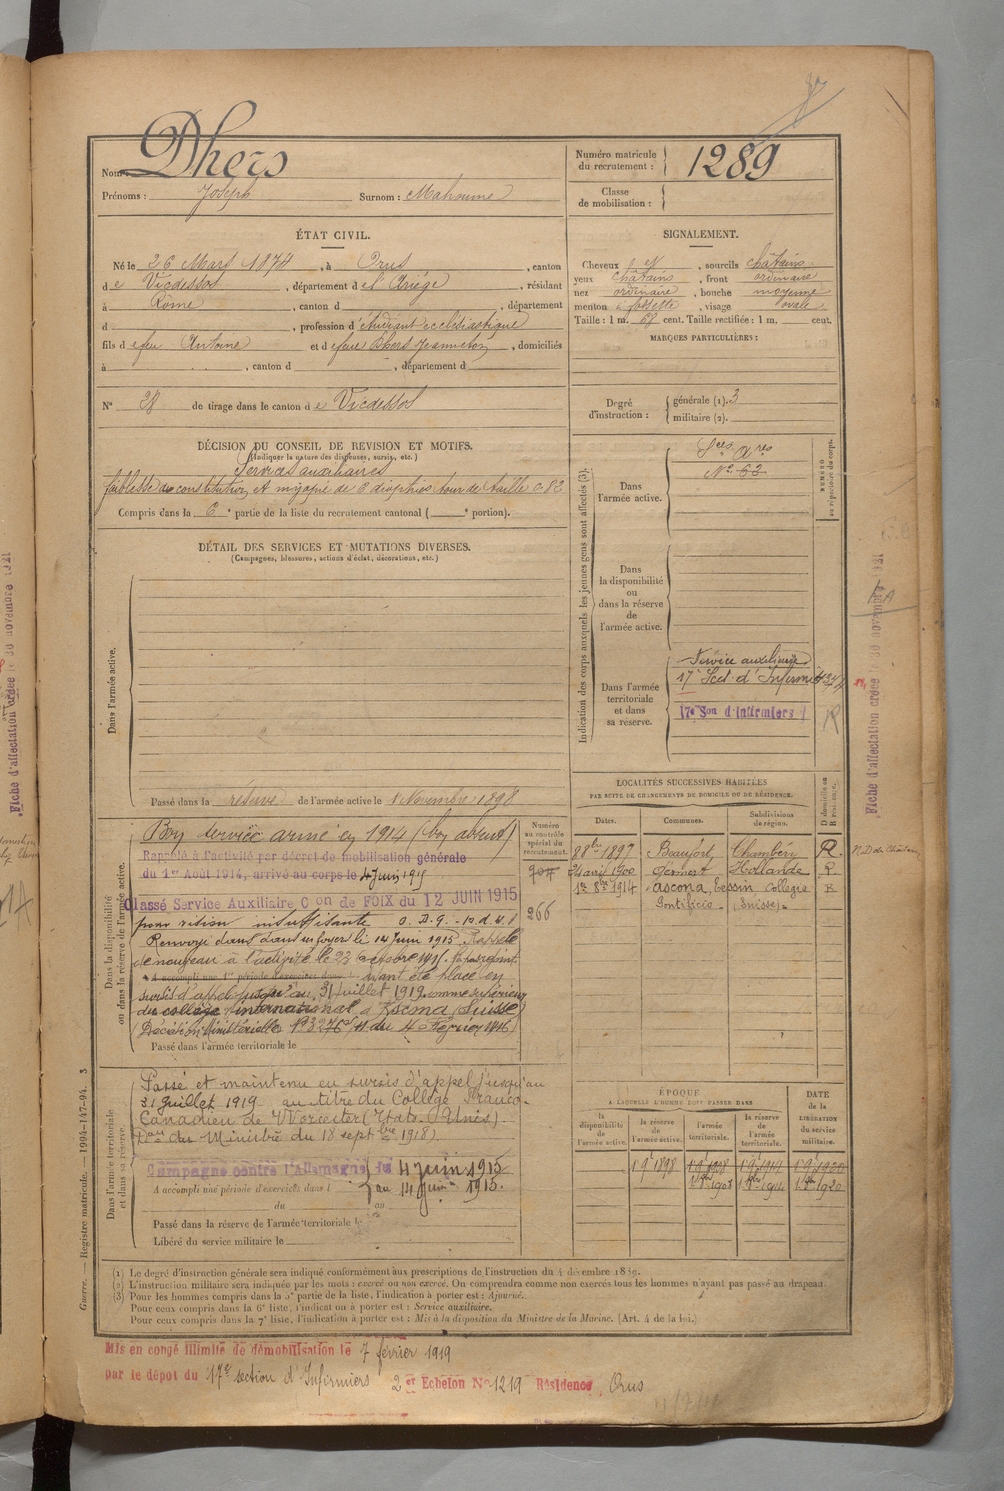 Nom : Dhers
Prénoms : Joseph Surnom :
Numéro matricule du recrutement : 1289
Classe de mobilisation :
ÉTAT CIVIL.
Né le 26 Mars 1874, à Orus, canton
de Vicdessos, département de l'Ariège, résidant
à Rome, canton d , département
d , profession d'étudiant ecclésiastique
fils de feu Antoine et de feue Dhers Jeanneton, domiciliés
à , canton d , département d
N° 28 de tirage dans le canton de Vicdessos
SIGNALEMENT.
Cheveux et , sourcils châtains
yeux châtains , front ordinaire
nez ordinaire , bouche moyenne
menton à fossette , visage ovale
Taille : 1 m. 69 cent. Taille rectifiée : 1 m. cent.
MARQUES PARTICULIÈRES :
Degré d'instruction : générale (1). 3
militaire (2).
DÉCISION DU CONSEIL DE REVISION ET MOTIFS.
(Indiquer la nature des dispenses, sursis, etc.)
Services auxiliaires
faiblesse de constitution et myopie de 6 dioptries tour de taille 0.82
Compris dans la 6e partie de la liste du recrutement cantonal ( e portion).
DÉTAIL DES SERVICES ET MUTATIONS DIVERSES.
(Campagnes, blessures, actions d'éclat, décorations, etc.)
Dans l'armée active.
Passé dans la réserve de l'armée active le 1 Novembre 1898
Indication des corps auxquels les jeunes gens sont affectés (3).
NUMÉRO au répertoire du corps.
Dans l'armée active.
N° 63
Dans la disponibilité ou dans la réserve de l'armée active.
Dans l'armée territoriale et dans sa réserve.
Service auxiliaire
17e Sect. d'Infirmiers
17e Son d'infirmiers
R
Fiche d'affectation créée le 30 novembre 1921
Dans la disponibilité ou dans la réserve de l'armée active.
Bon service armé en 1914 (bon absent)
Rappelé à l'activité par décret de mobilisation générale
du 1er Août 1914, arrivé au corps le 4 juin 1915
Classé Service Auxiliaire Con de FOIX du 12 JUIN 1915
pour vision insuffisante
Renvoyé dans ses foyers le 14 Juin 1915. Rappelé
de nouveau à l'activité le 23 octobre 1915.
A accompli une 1re période d'exercices dans l ayant été placé en
sursis d'appel jusqu'au 31 juillet 1919 comme supérieur
du collège international d'Ascona, Suisse
(Décision Ministérielle du 4 Février 1916)
Passé dans l'armée territoriale le
Numéro au contrôle spécial du recrutement.
266
LOCALITÉS SUCCESSIVES HABITÉES
PAR SUITE DE CHANGEMENTS DE DOMICILE OU DE RÉSIDENCE.
Dates. Communes. Subdivisions de région. D domicile ou R résidence.
8 8bre 1897 Beaufort Chambéry R.
24 avril 1900 Gemert Hollande R
1er 8bre 1914 Ascona, Tessin Collegio R
Pontificio Suisse
Dans l'armée territoriale et dans sa réserve.
Passé et maintenu en sursis d'appel jusqu'au
31 Juillet 1919 au titre du Collège Franco-
Canadien de Worcester (Etats-Unis)
(Don du Ministre du 18 septbre 1918).
Campagne contre l'Allemagne du 4 juin 1915
A accompli une période d'exercices dans l au 14 juin 1915.
du au
Passé dans la réserve de l'armée territoriale le
Libéré du service militaire le
ÉPOQUE
A LAQUELLE L'HOMME DOIT PASSER DANS
la disponibilité de l'armée active. la réserve de l'armée active. l'armée territoriale. la réserve de l'armée territoriale. DATE de la LIBÉRATION du service militaire.
1 9e 1898 1 9e 1908 1 9e 1914 1 9e 1920
(1) Le degré d'instruction générale sera indiqué conformément aux prescriptions de l'instruction du 4 décembre 1889.
(2) L'instruction militaire sera indiquée par les mots : exercé ou non exercé. On comprendra comme non exercés tous les hommes n'ayant pas passé au drapeau.
(3) Pour les hommes compris dans la 5e partie de la liste, l'indication à porter est : Ajourné.
Pour ceux compris dans la 6e liste, l'indication à porter est : Service auxiliaire.
Pour ceux compris dans la 7e liste, l'indication à porter est : Mis à la disposition du Ministre de la Marine. (Art. 4 de la loi.)
Guerre. — Registre matricule. — 1994-147-94. 3
Mis en congé illimité de démobilisation le 7 février 1919
par le dépôt du 17e section d'Infirmiers 2er Echelon N° 1219 Résidence Orus
Fiche d'affectation créée le 30 novembre 1921